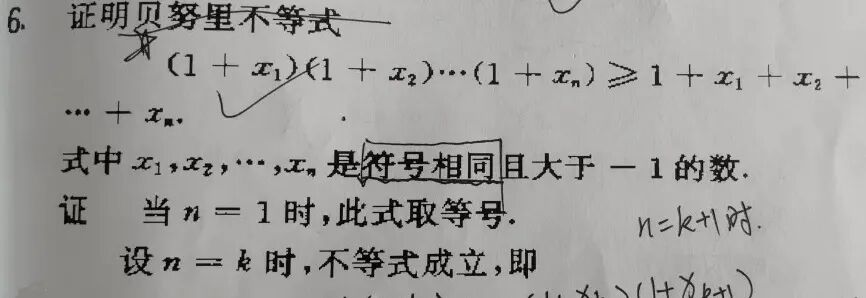 6. 证明贝努里不等式
(1 + x₁)(1 + x₂)⋯(1 + xₙ) ⩾ 1 + x₁ + x₂ +
⋯ + xₙ.
式中 x₁,x₂,⋯,xₙ 是符号相同且大于 − 1 的数.
证 当 n = 1 时,此式取等号.
n=k+1时.
设 n = k 时,不等式成立,即
(1+xₖ₊₁)